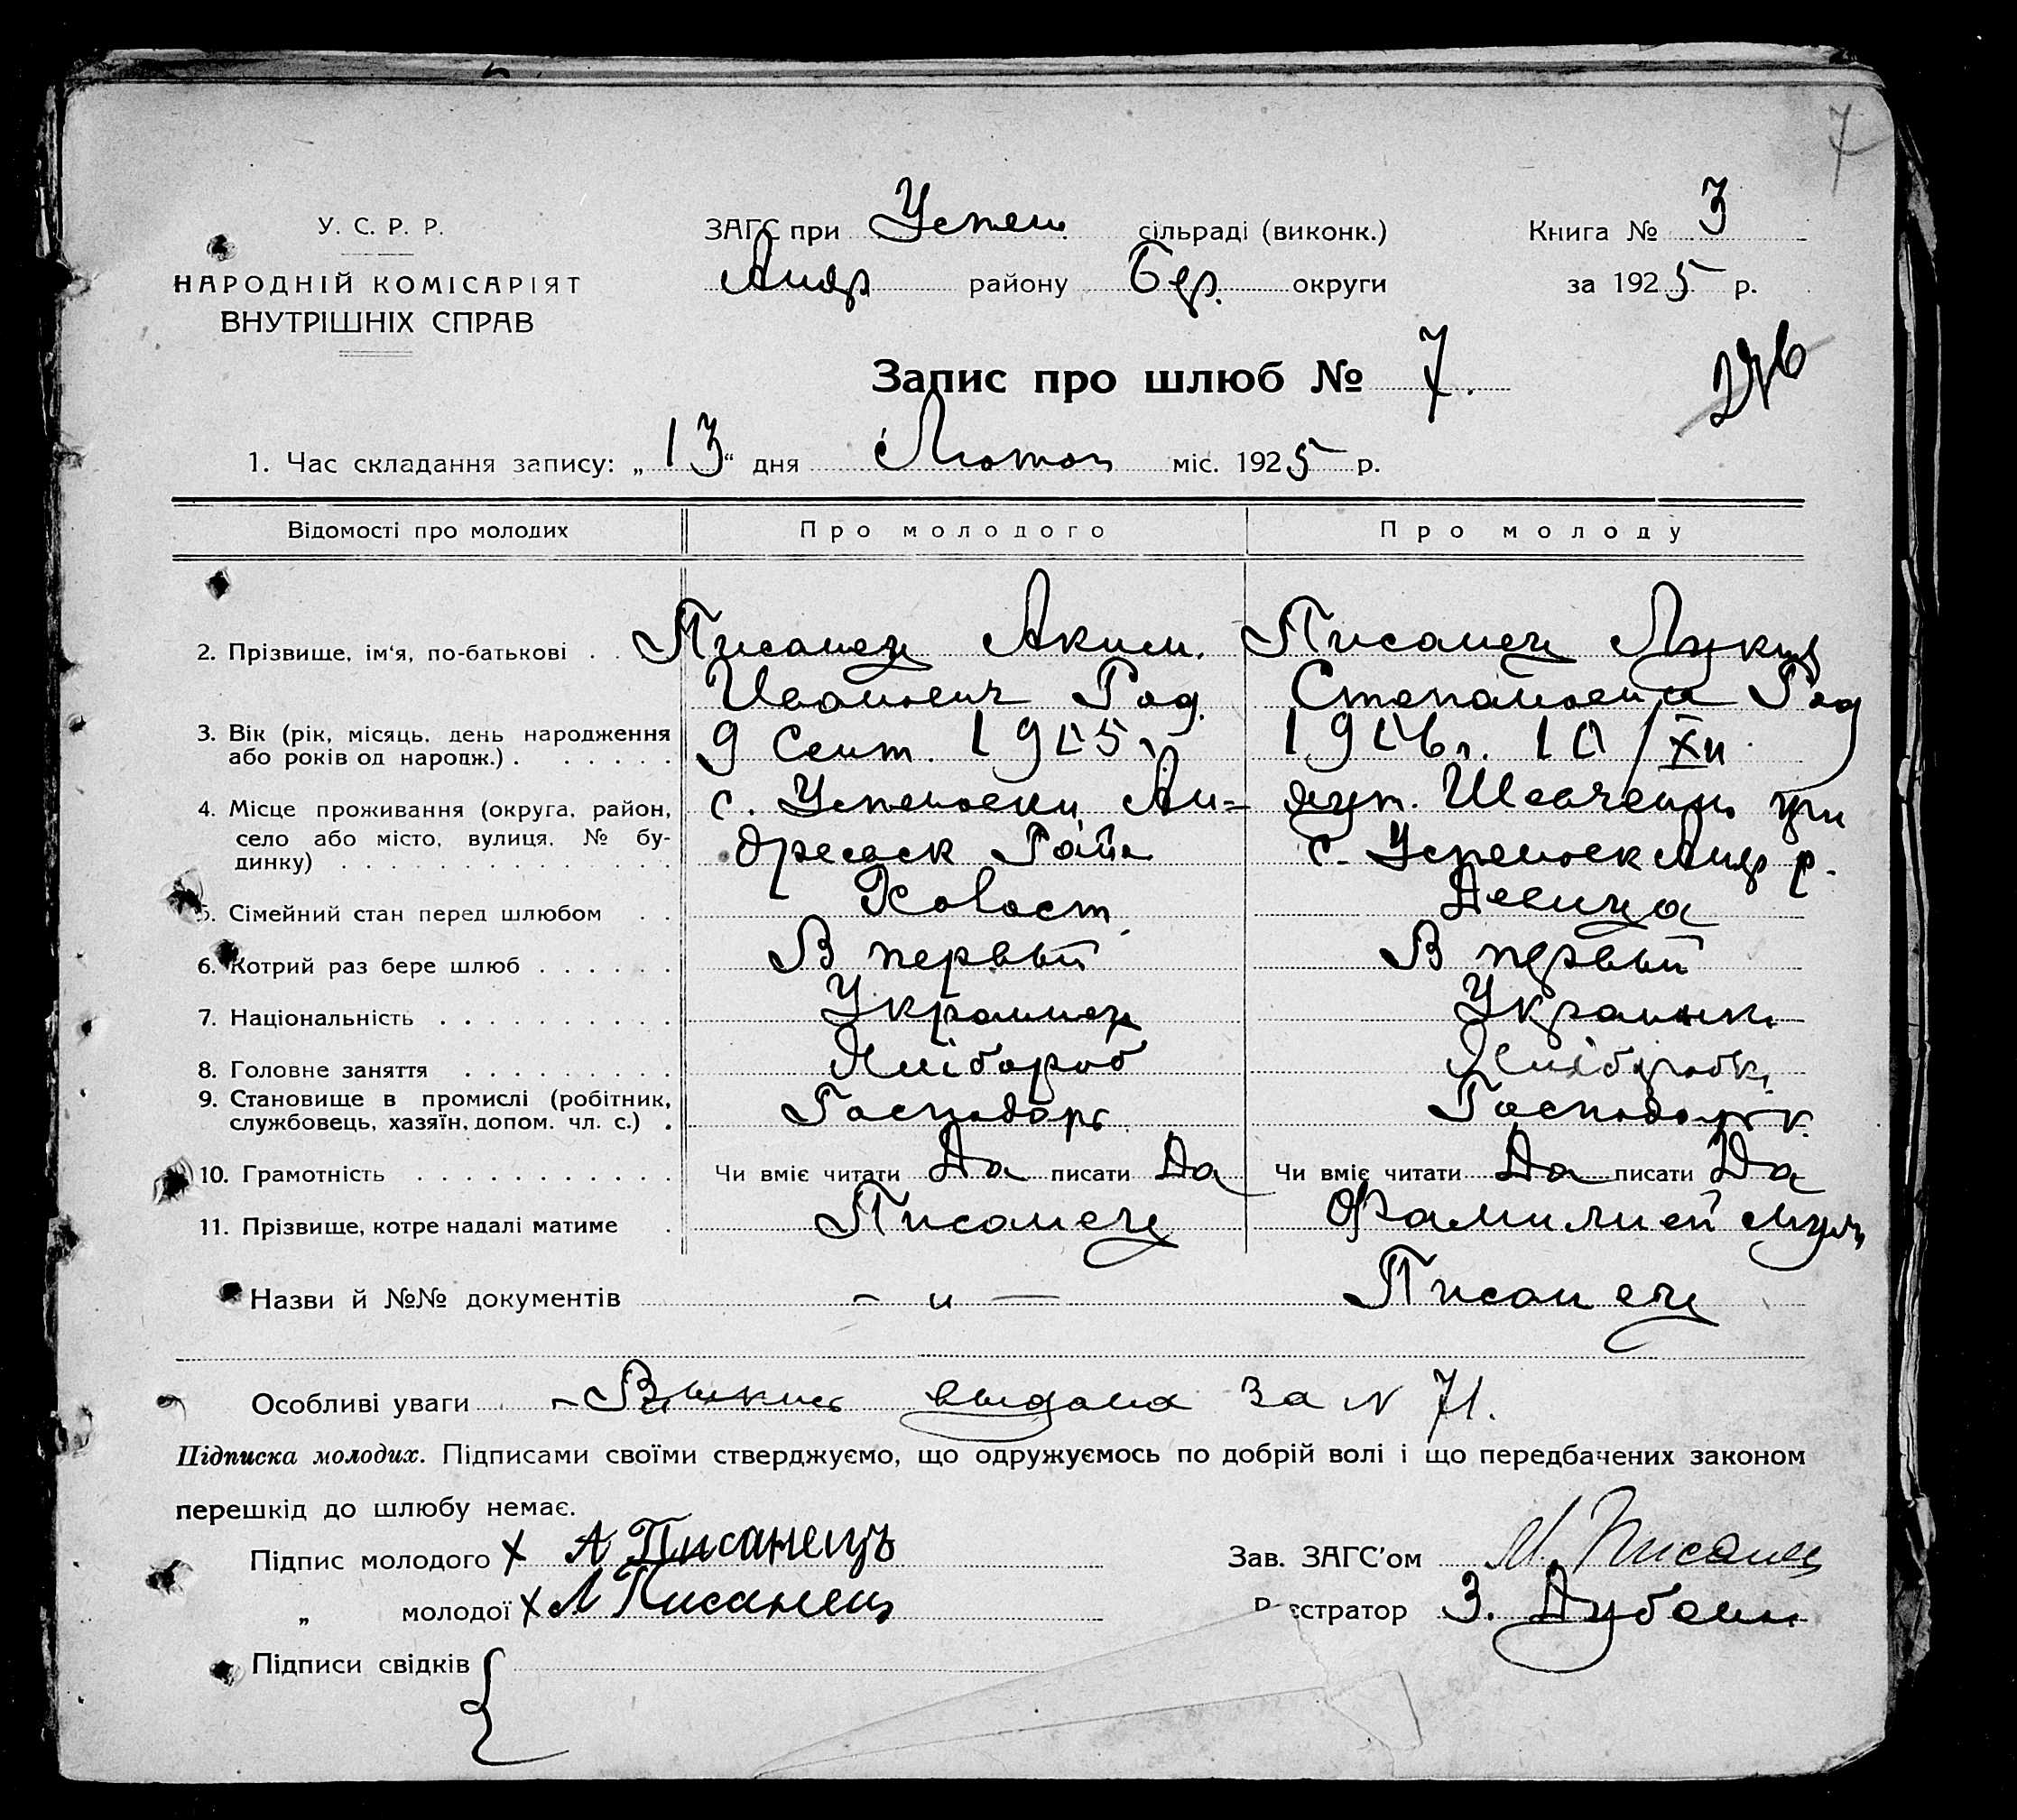 7
У. С. Р. Р.
НАРОДНІЙ КОМІСАРІЯТ
ВНУТРІШНІХ СПРАВ
ЗАГС при Успен. сільраді (виконк.)
Андр району Бер. округи
Книга № 3
за 1925 р.
Запис про шлюб № 7.
1. Час складання запису: „13“ дня міс. 1925 р.
Відомості про молодих Про молодого Про молоду
2. Прізвище, ім'я, по-батькові . . Писанец Аким. Писанец
Иванович Род. Степановна Род
3. Вік (рік, місяць, день народження
або років од народж.) . . . . . . 9 Сент. 1905 г. 1906 г. 10/XII
4. Місце проживання (округа, район,
село або місто, вулиця, № бу-
динку) . . . . . . . . . . . .
с. Ан- хут. при
дреевск Рай. с. Андр р.
5. Сімейний стан перед шлюбом . . Холост. Девица
6. Котрий раз бере шлюб . . . . . . В первый В первый
7. Національність . . . . . . . . . . Украинец Украинк.
8. Головне заняття . . . . . . . . . Хлібороб
9. Становище в промислі (робітник,
службовець, хазяїн, допом. чл. с.) . Господарь
10. Грамотність . . . . . . . . . . . Чи вміє читати Да писати Да Чи вміє читати Да писати Да
11. Прізвище, котре надалі матиме . Писанец Фамилией мужа
Назви й №№ документів — и — Писанец
Особливі уваги выдана за N 71.
Підписка молодих. Підписами своїми стверджуємо, що одружуємось по добрій волі і що передбачених законом
перешкід до шлюбу немає.
Підпис молодого X А Писанець
„ молодої X Л Писанец
Зав. ЗАГС'ом М. Писанец
Реєстратор З.
Підписи свідків {